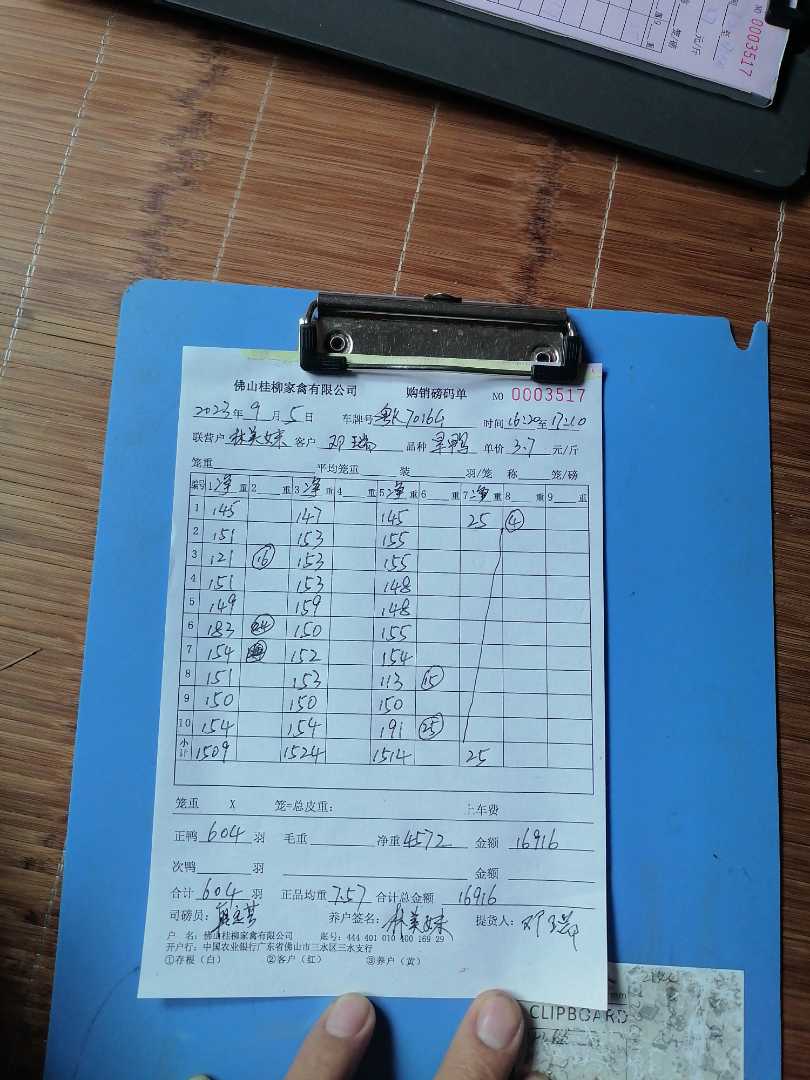 NO 0003517
元/斤
佛山桂柳家禽有限公司 购销磅码单 NO 0003517
2023年9月5日 车牌号粤K70164 时间16:20至17:10
联营户林美妹 客户邓瑞 品种 单价3.7元/斤
笼重 平均笼重 装 羽/笼 称 笼/磅
编号 1净重 2重 3净重 4重 5净重 6重 7净重 8重 9重
1 145 147 145 25 ④
2 151 153 155
3 121 ⑯ 153 155
4 151 153 148
5 149 159 148
6 183 150 155
7 154 152 154
8 151 153 113 ⑮
9 150 150 150
10 154 154 191 ㉕
小计 1509 1524 1514 25
笼重 X 笼=总皮重: 上车费
正鸭604羽 毛重 净重4572 金额16916
次鸭 羽 金额
合计604羽 正品均重7.57 合计总金额16916
司磅员: 养户签名:林美妹 提货人:
户 名:佛山桂柳家禽有限公司 账号:444 401 010 400 169 29
开户行:中国农业银行广东省佛山市三水区三水支行
①存根(白) ②客户(红) ③养户(黄)
mm
CLIPBOARD